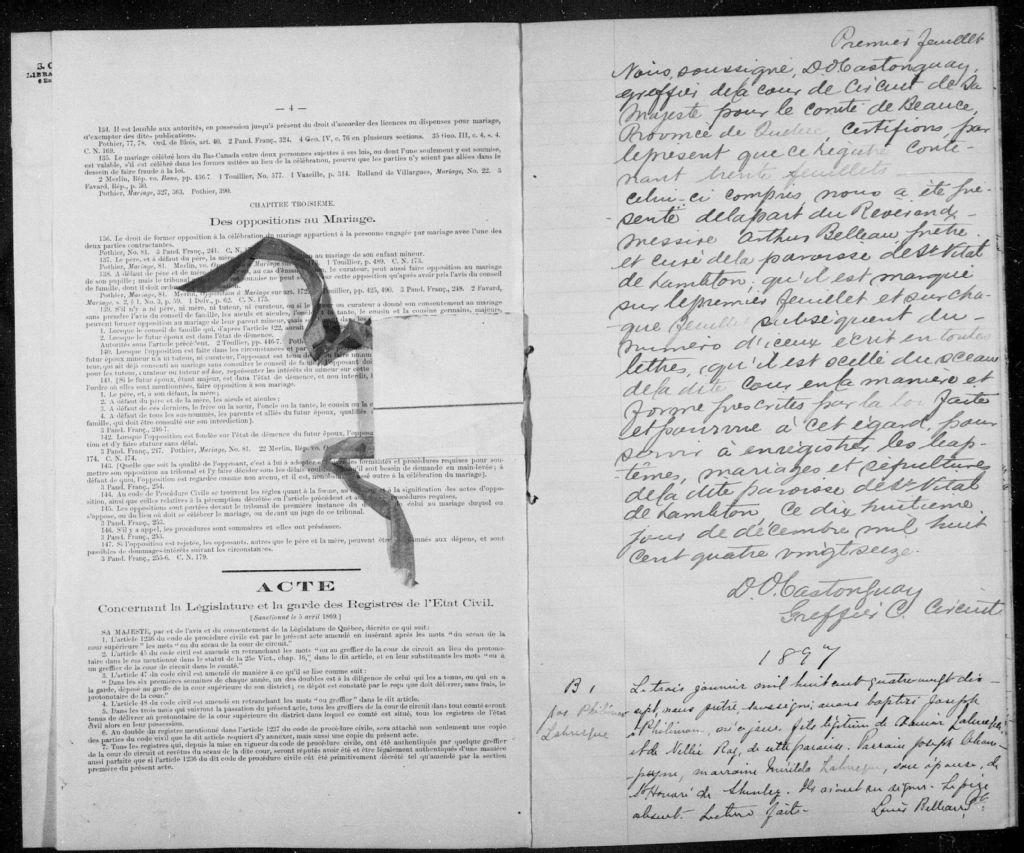 — 4 —
134. Il est loisible aux autorités, en possession jusqu'à présent du droit d'accorder des licences ou dispenses pour mariage,
d'exempter des dites publications.
Pothier, 77, 78. Ord. de Blois, art. 40. 2 Pand. Franç., 324. 4 Geo. IV, c. 76 en plusieurs sections. 35 Geo. III, c. 4, s. 4.
C. N. 169.
135. Le mariage célébré hors du Bas-Canada entre deux personnes sujettes à ses lois, ou dont l'une seulement y est soumise,
est valable, s'il est célébré dans les formes usitées au lieu de la célébration, pourvu que les parties n'y soient pas allées dans le
dessein de faire fraude à la loi.
2 Merlin, Rép. vo. Bans, pp. 456-7. 1 Touillier, No. 577. 1 Vazeille, p. 314. Rolland de Villargues, Mariage, No. 22. 3
Favard, Rép., p. 30.
Pothier, Mariage, 327, 363. Pothier, 390.
CHAPITRE TROISIEME.
Des oppositions au Mariage.
136. Le droit de former opposition à la célébration du mariage appartient à la personne engagée par mariage avec l'une des
deux parties contractantes.
Pothier, No. 81. 3 Pand. Franç., 241. C. N.
137. Le père, et à défaut du père, la au mariage de son enfant mineur.
Pothier, Mariage, 81. Merlin, vo. 1 Touillier, p. 489. C. N. 173.
138. A défaut de père et de le curateur, peut aussi faire opposition au mariage
de son pupille; mais le tribunal cette opposition qu'après avoir pris l'avis du conseil
de famille, dont il doit
Pothier, Mariage, 81. Merlin, Opposition à Mariage sur art. pp. 425, 490. 3 Pand. Franç., 248. 2 Favard,
Mariage, s. 2, § 1, No. 3, p. 59. 1 Delv., p. 62. C. N. 175.
139. S'il n'y a ni père, ni mère, ni tuteur, ni curateur, ou si le ou curateur a donné son consentement au mariage
sans prendre l'avis du conseil de famille, les aïeuls et aïeules, tante, le cousin et la cousine germains, majeurs,
peuvent former opposition au mariage de leur parent mineur, mais
1. Lorsque le conseil de famille qui, d'après l'article 122,
2. Lorsque le futur époux est dans l'état de démence.
Autorités sous l'article précédent. 2 Touillier, pp. 446-7.
140. Lorsque l'opposition est faite dans les circonstances et par
futur époux mineur n'a ni tuteur, ni curateur, l'opposant est tenu
teur, qui ait déjà consenti au mariage sans consulter le conseil de famille,
pour les tuteur, curateur ou tuteur ad hoc, représenter les intérêts du mineur sur cette
141. [Si le futur époux, étant majeur, est dans l'état de démence, et non interdit,
ordre où elles sont mentionnées, faire opposition à son mariage.
1. Le père, et, à son défaut, la mère;
2. A défaut du père et de la mère, les aïeuls et aïeules;
3. A défaut de ces derniers, le frère ou la sœur, l'oncle ou la tante, le cousin ou la
4. A défaut de tous les sus-nommés, les parents et alliés du futur époux, qualifiés
famille, qui doit être consulté sur son interdiction].
3 Pand. Franç., 246-7.
142. Lorsque l'opposition est fondée sur l'état de démence du futur époux,
tion et d'y faire statuer sans délai.
3 Pand. Franç., 247. Pothier, Mariage, No. 81. 22 Merlin, Rép. vo.
174. C. N. 174.
143. [Quelle que soit la qualité de l'opposant, c'est à lui à adopter formalités et procédures requises pour sou-
mettre son opposition au tribunal et l'y faire décider sous les délais soit besoin de demande en main-levée; à
défaut de quoi, l'opposition est regardée comme non avenue, et il est, outre à la célébration du mariage].
3 Pand. Franç., 254.
144. Au code de Procédure Civile se trouvent les règles quant à la forme, à la signification des actes d'oppo-
sition, ainsi que celles relatives à la péremption décrétée en l'article précédent et procédures requises.
145. Les oppositions sont portées devant le tribunal de première instance du celui au mariage duquel on
s'oppose, ou du lieu où doit se célébrer le mariage, ou devant un juge de ce tribunal.
3 Pand. Franç., 253.
146. S'il y a appel, les procédures sont sommaires et elles ont préséance.
3 Pand. Franç., 253.
147. Si l'opposition est rejetée, les opposants, autres que le père et la mère, peuvent être aux dépens, et sont
passibles de dommages-intérêts suivant les circonstances.
3 Pand. Franç., 255-6. C. N. 179.
ACTE
Concernant la Législature et la garde des Registres de l'Etat Civil.
[Sanctionné le 5 avril 1869.]
SA MAJESTE, par et de l'avis et du consentement de la Législature de Québec, décrète ce qui suit:
1. L'article 1236 du code de procédure civile est par le présent acte amendé en insérant après les mots "du sceau de la
cour supérieure" les mots "ou du sceau de la cour de circuit."
2. L'article 45 du code civil est amendé en retranchant les mots "ou au greffier de la cour de circuit au lieu du protono-
taire dans le cas mentionné dans le statut de la 25e Vict., chap. 16," dans le dit article, et en leur substituants les mots "ou à
un greffier de la cour de circuit dans le comté."
3. L'article 47 du code civil est amendé à ce qu'il se lise comme suit:
"Dans les six premières semaines de chaque année, un des doubles est à la diligence de celui qui les a tenus, ou qui en a
la garde, déposé au greffe de la cour supérieure de son district; ce dépôt est constaté par le reçu que doit délivrer, sans frais, le
protonotaire de la cour."
4. L'article 48 du code civil est amendé en retranchant les mots "ou greffier" dans le dit article.
5. Dans les trois mois qui suivront la passation du présent acte, tous les greffiers de la cour de circuit dans tout comté seront
tenus de délivrer au protonotaire de la cour supérieure du district dans lequel ce comté est situé, tous les registres de l'état
civil alors en leur possession.
6. Au double du registre mentionné dans l'article 1237 du code de procédure civile, sera attaché non seulement une copie
des parties du code civil que le dit article requiert d'y annexer, mais aussi une copie du présent acte.
7. Tous les registres qui, depuis la mise en vigueur du code de procédure civile, ont été authentiqués par quelque greffier
de la cour de circuit et revêtus du sceau de la dite cour, seront réputés avoir été et être légalement authentiqués d'une manière
aussi parfaite que si l'article 1236 du dit code de procédure civile eût été primitivement décrété tel qu'amendé par la section
première du présent acte.
Premier feuillet
Nous, soussigné, D.O. Castonguay,
greffier de la cour de Circuit de Sa
Majesté pour le comté de Beauce,
Province de Québec, certifions par
le présent que ce registre conte-
nant trente feuillets
celui-ci compris nous a été pré-
senté de la part du Révérend
messire Arthur Belleau prêtre
et curé de la paroisse de St Vital
de Lambton; qu'il est marqué
sur le premier feuillet et sur cha-
que feuillet subséquent du
numéro d'iceux écrit en toutes
lettres, qu'il est scellé du sceau
de la dite cour en la manière et
forme prescrites par la loi faite
et pourvue à cet égard, pour
servir à enregistrer les bap-
têmes, mariages et sépultures
de la dite paroisse de St Vital
de Lambton, ce dix huitième
jour de décembre mil huit
cent quatre vingt seize.
D.O. Castonguay
Greffier C. Circuit
1897
B 1
Jos Philémon
Labrecque
Le trois janvier mil huit cent quatre vingt dix-
sept, nous prêtre, soussigné, avons baptisé Joseph
Philémon, né ce jour, fils légitime de Labrecque
et de Nellie Roy, de cette paroisse. Parrain Joseph Cham-
pagne, marraine Labrecque, son épouse, de
St Honoré de Shenley. Ils n'ont su signer. Le père
absent. Lecture faite.
Louis Belleau Ptr